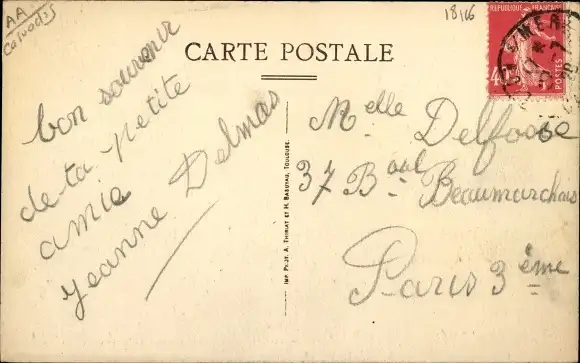 AA
Calvados
18126
CARTE POSTALE
RÉPUBLIQUE FRANÇAISE
40c
POSTES
bon souvenir
de ta petite
amie
Jeanne Delmas
Imp. Phot. A. Thiriat et H. Basuyau, Toulouse.
Melle Delfosse
37 Bould Beaumarchais
Paris 3ème